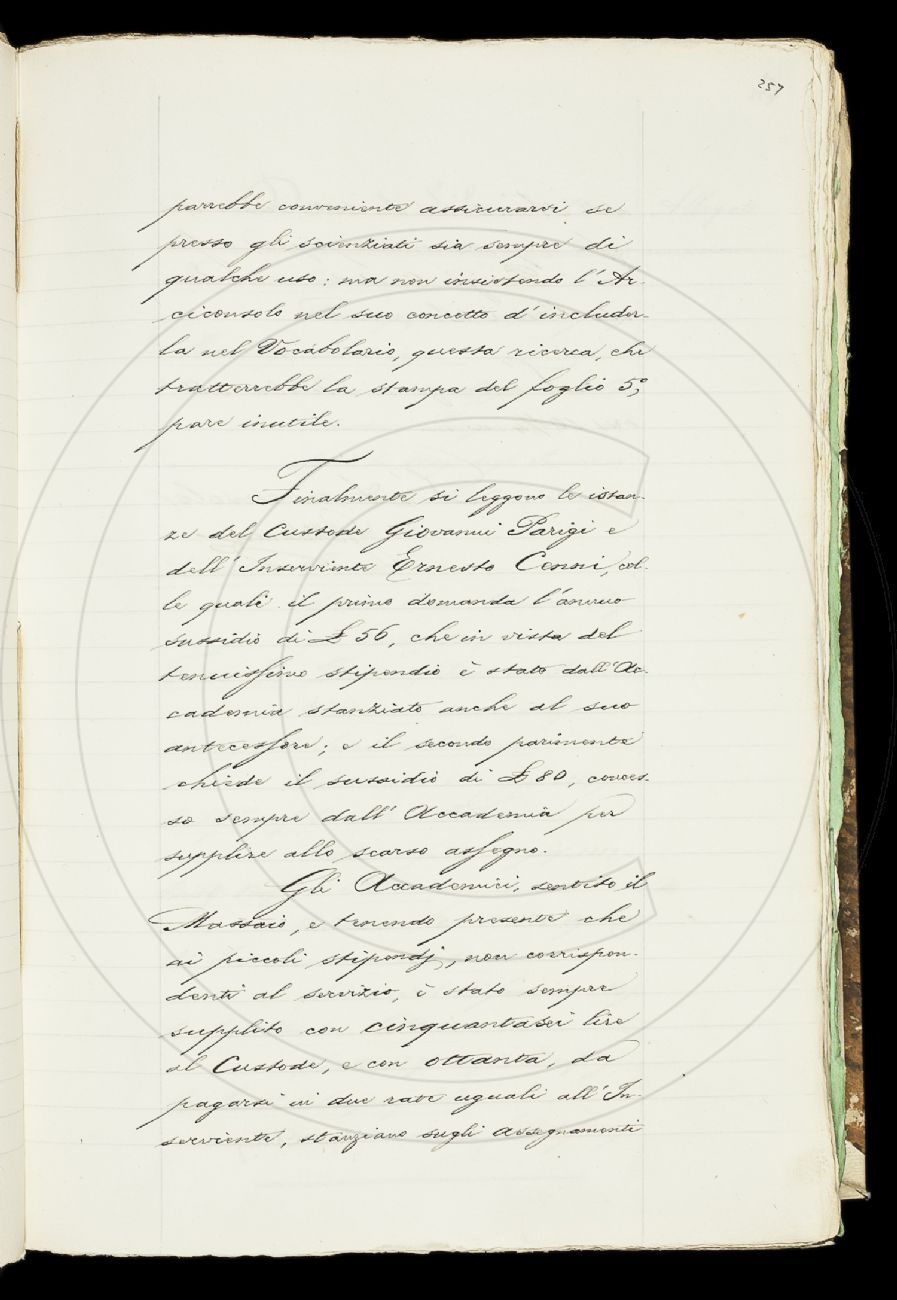 257
parrebbe conveniente assicurarsi se
presso gli scienziati sia sempre di
qualche uso: ma non insistendo l'Ar-
ciconsolo nel suo concetto d'includer-
la nel Vocabolario, questa ricerca, che
tratterrebbe la stampa del foglio 5°,
pare inutile.
Finalmente si leggono le istan-
ze del Custode Giovanni Parigi e
dell'Inserviente Ernesto Cenni, col-
le quali il primo domanda l'annuo
sussidio di £ 56, che in vista del
tenuissimo stipendio è stato dall'Ac-
cademia stanziato anche al suo
antecessore; e il secondo parimente
chiede il sussidio di £ 80, conces-
so sempre dall'Accademia per
supplire allo scarso assegno.
Gli Accademici, sentito il
Massaio, e tenendo presente che
ai piccoli stipendj, non corrispon-
denti al servizio, è stato sempre
supplito con cinquantasei lire
al Custode, e con ottanta, da
pagarsi in due rate uguali all'In-
serviente, stanziano sugli assegnamenti